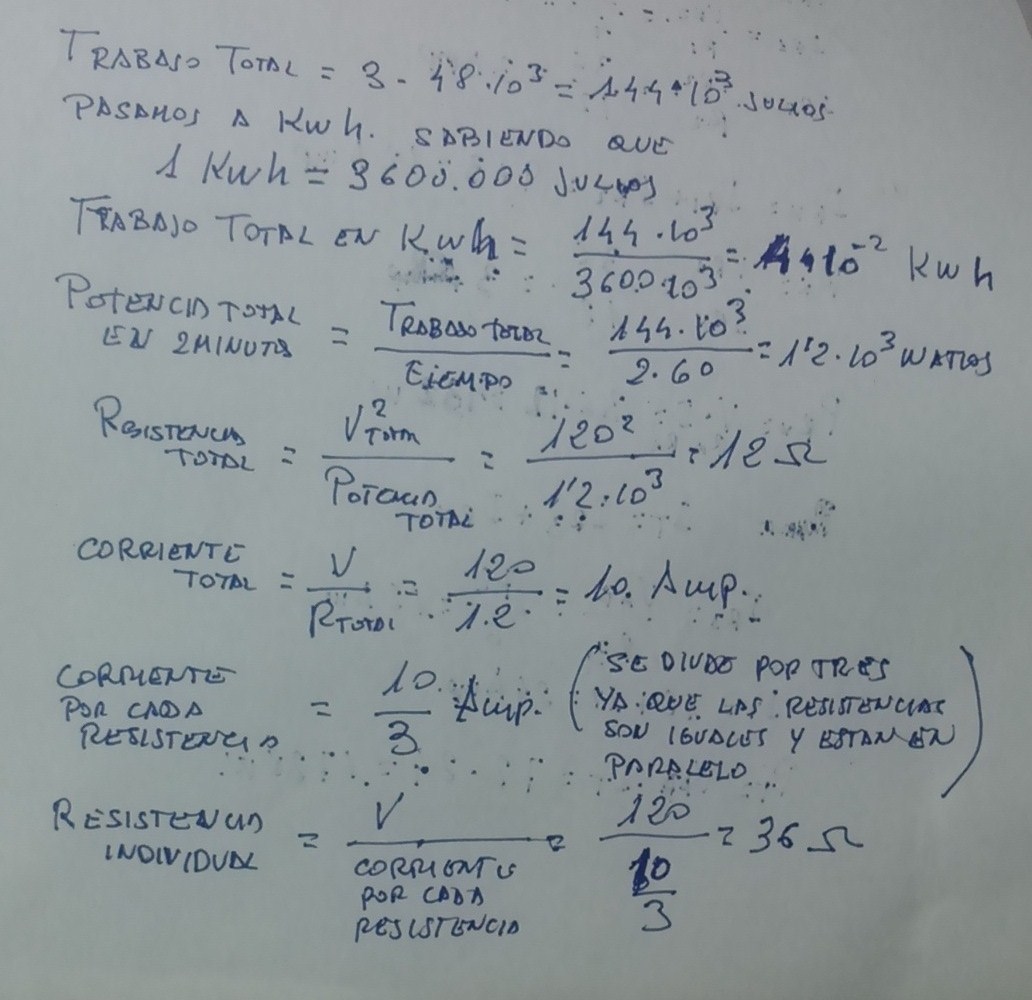 TRABAJO TOTAL = 3 · 48·10³ = 144·10³ JULIOS
PASAMOS A KWh. SABIENDO QUE
1 KWh = 3600.000 JULIOS
TRABAJO TOTAL EN KWh = 144·10³ / 3600·10³ = 4·10⁻² KWh
POTENCIA TOTAL EN 2 MINUTOS = TRABAJO TOTAL / TIEMPO = 144·10³ / 2·60 = 1'2·10³ WATIOS
RESISTENCIA TOTAL = V²TOTAL / POTENCIA TOTAL = 120² / 1'2·10³ = 12 Ω
CORRIENTE TOTAL = V / RTOTAL = 120 / 12 = 10 Amp.
CORRIENTE POR CADA RESISTENCIA = 10 / 3 Amp. (SE DIVIDE POR TRES
YA QUE LAS RESISTENCIAS
SON IGUALES Y ESTAN EN
PARALELO)
RESISTENCIA INDIVIDUAL = V / CORRIENTE POR CADA RESISTENCIA = 120 / 10/3 = 36 Ω